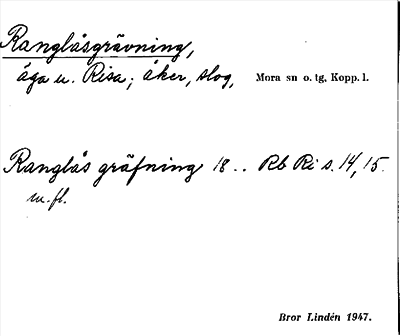 Ranglåsgrävning,
äga u. Risa; åker, slog, Mora sn o. tg, Kopp. l.
Ranglås gräfning 18.. Rb Ri s. 14, 15.
m. fl.
Bror Lindén 1947.